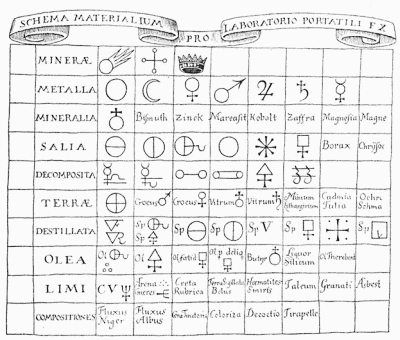 SCHEMA MATERIALIUM
PRO
LABORATORIO PORTATILI
MINERÆ
METALLA
MINERALIA Bismuth Zinck Marcasit Kobolt Zaffra Magnesia Magne
SALIA Borax Chrÿsoc
DECOMPOSITA
TERRÆ Crocus Crocus Vitrum Vitrum Minium Cadmia Tutia Ochra Schma
DESTILLATA Sp Sp Sp Sp Sp V Sp Sp
OLEA Ol Ol Butyr Liquor Silicum
LIMI CV Arena Creta Rubrica Terra Sigillata Bolus Hæmatites Smiris Talcum Granati Asbest
COMPOSITIONES Fluxus Niger Fluxus Albus Coloriza Decoctio Tirapelle